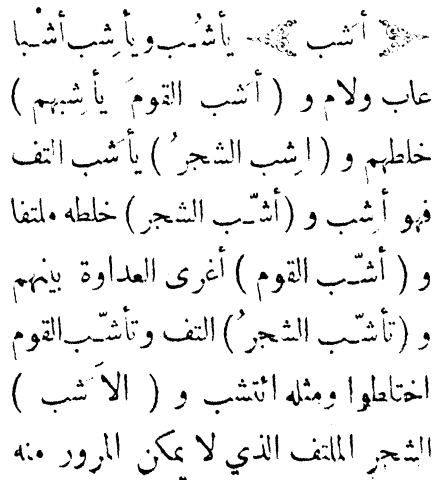 ﴿ أَشب ﴾ يأشُب ويأشِب أشْبا
عاب ولام و ( أَشب القومَ يأشِبهم )
خلطهم و ( اشِب الشجرُ ) يأشَب التف
فهو أشِب و ( أشّب الشجر ) خلطه ملتفا
و ( أشّب القوم ) أغرى العداوة بينهم
و ( تأشّب الشجرُ ) التف وتأشّب القوم
اختلطوا ومثله ائتشب و ( الأَشب )
الشجر الملتف الذي لا يمكن المرور منه